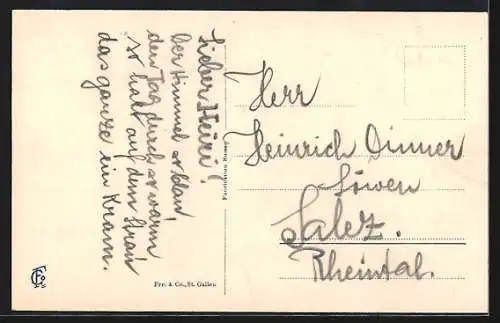 Lieber Heiri!
Der Himmel so blau,
den Tag durch so warm
so halt auf dem Strau
das ganze ein Kram.
Herr
Heinrich Dinner
Löwen
Salez.
Rheintal.
Frei & Co., St. Gallen